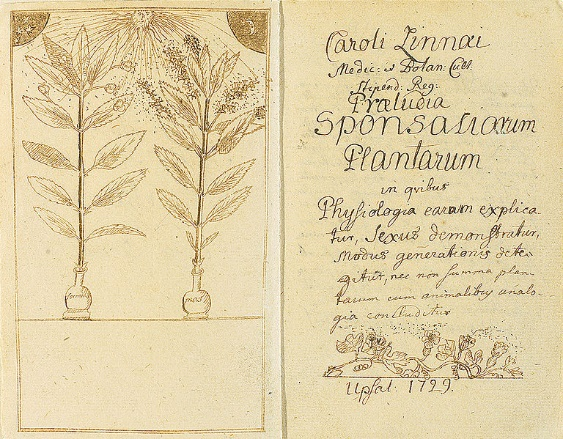 Caroli Linnæi
Medic: & Botan: Cult.
Stipend: Reg:
Præludia
Sponsaliarum
Plantarum
in qvibus
Physiologia earum explica
tur, Sexus demonstratur,
Modus generationis dete-
gitur, nec non summa plan-
tarum cum animalibus analo-
gia concluditur
Upsal. 1729.